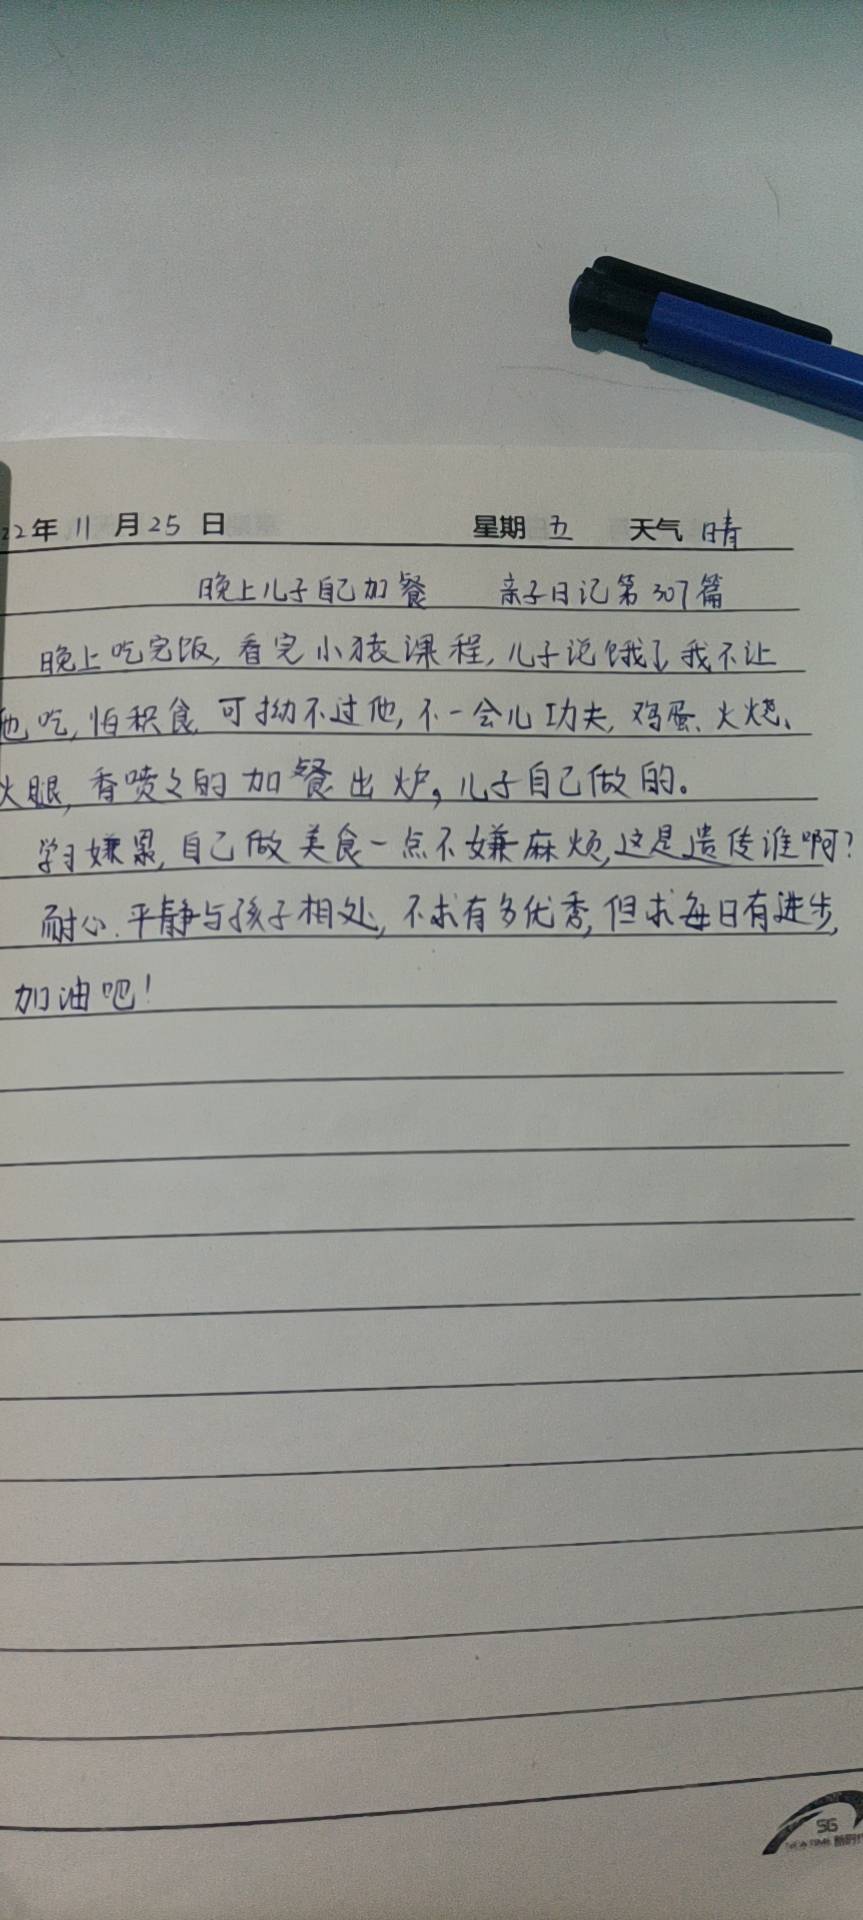 22年11月25日 星期五 天气晴
晚上儿子自己加餐 亲子日记第307篇
晚上吃完饭,看完小猿课程,儿子说饿了,我不让
他吃,怕积食,可拗不过他,不一会儿功夫,鸡蛋、火烧、
火腿,香喷々的加餐出炉,儿子自己做的。
学习嫌累,自己做美食一点不嫌麻烦,这是遗传谁啊?
耐心、平静与孩子相处,不求有多优秀,但求每日有进步,
加油吧!
SG